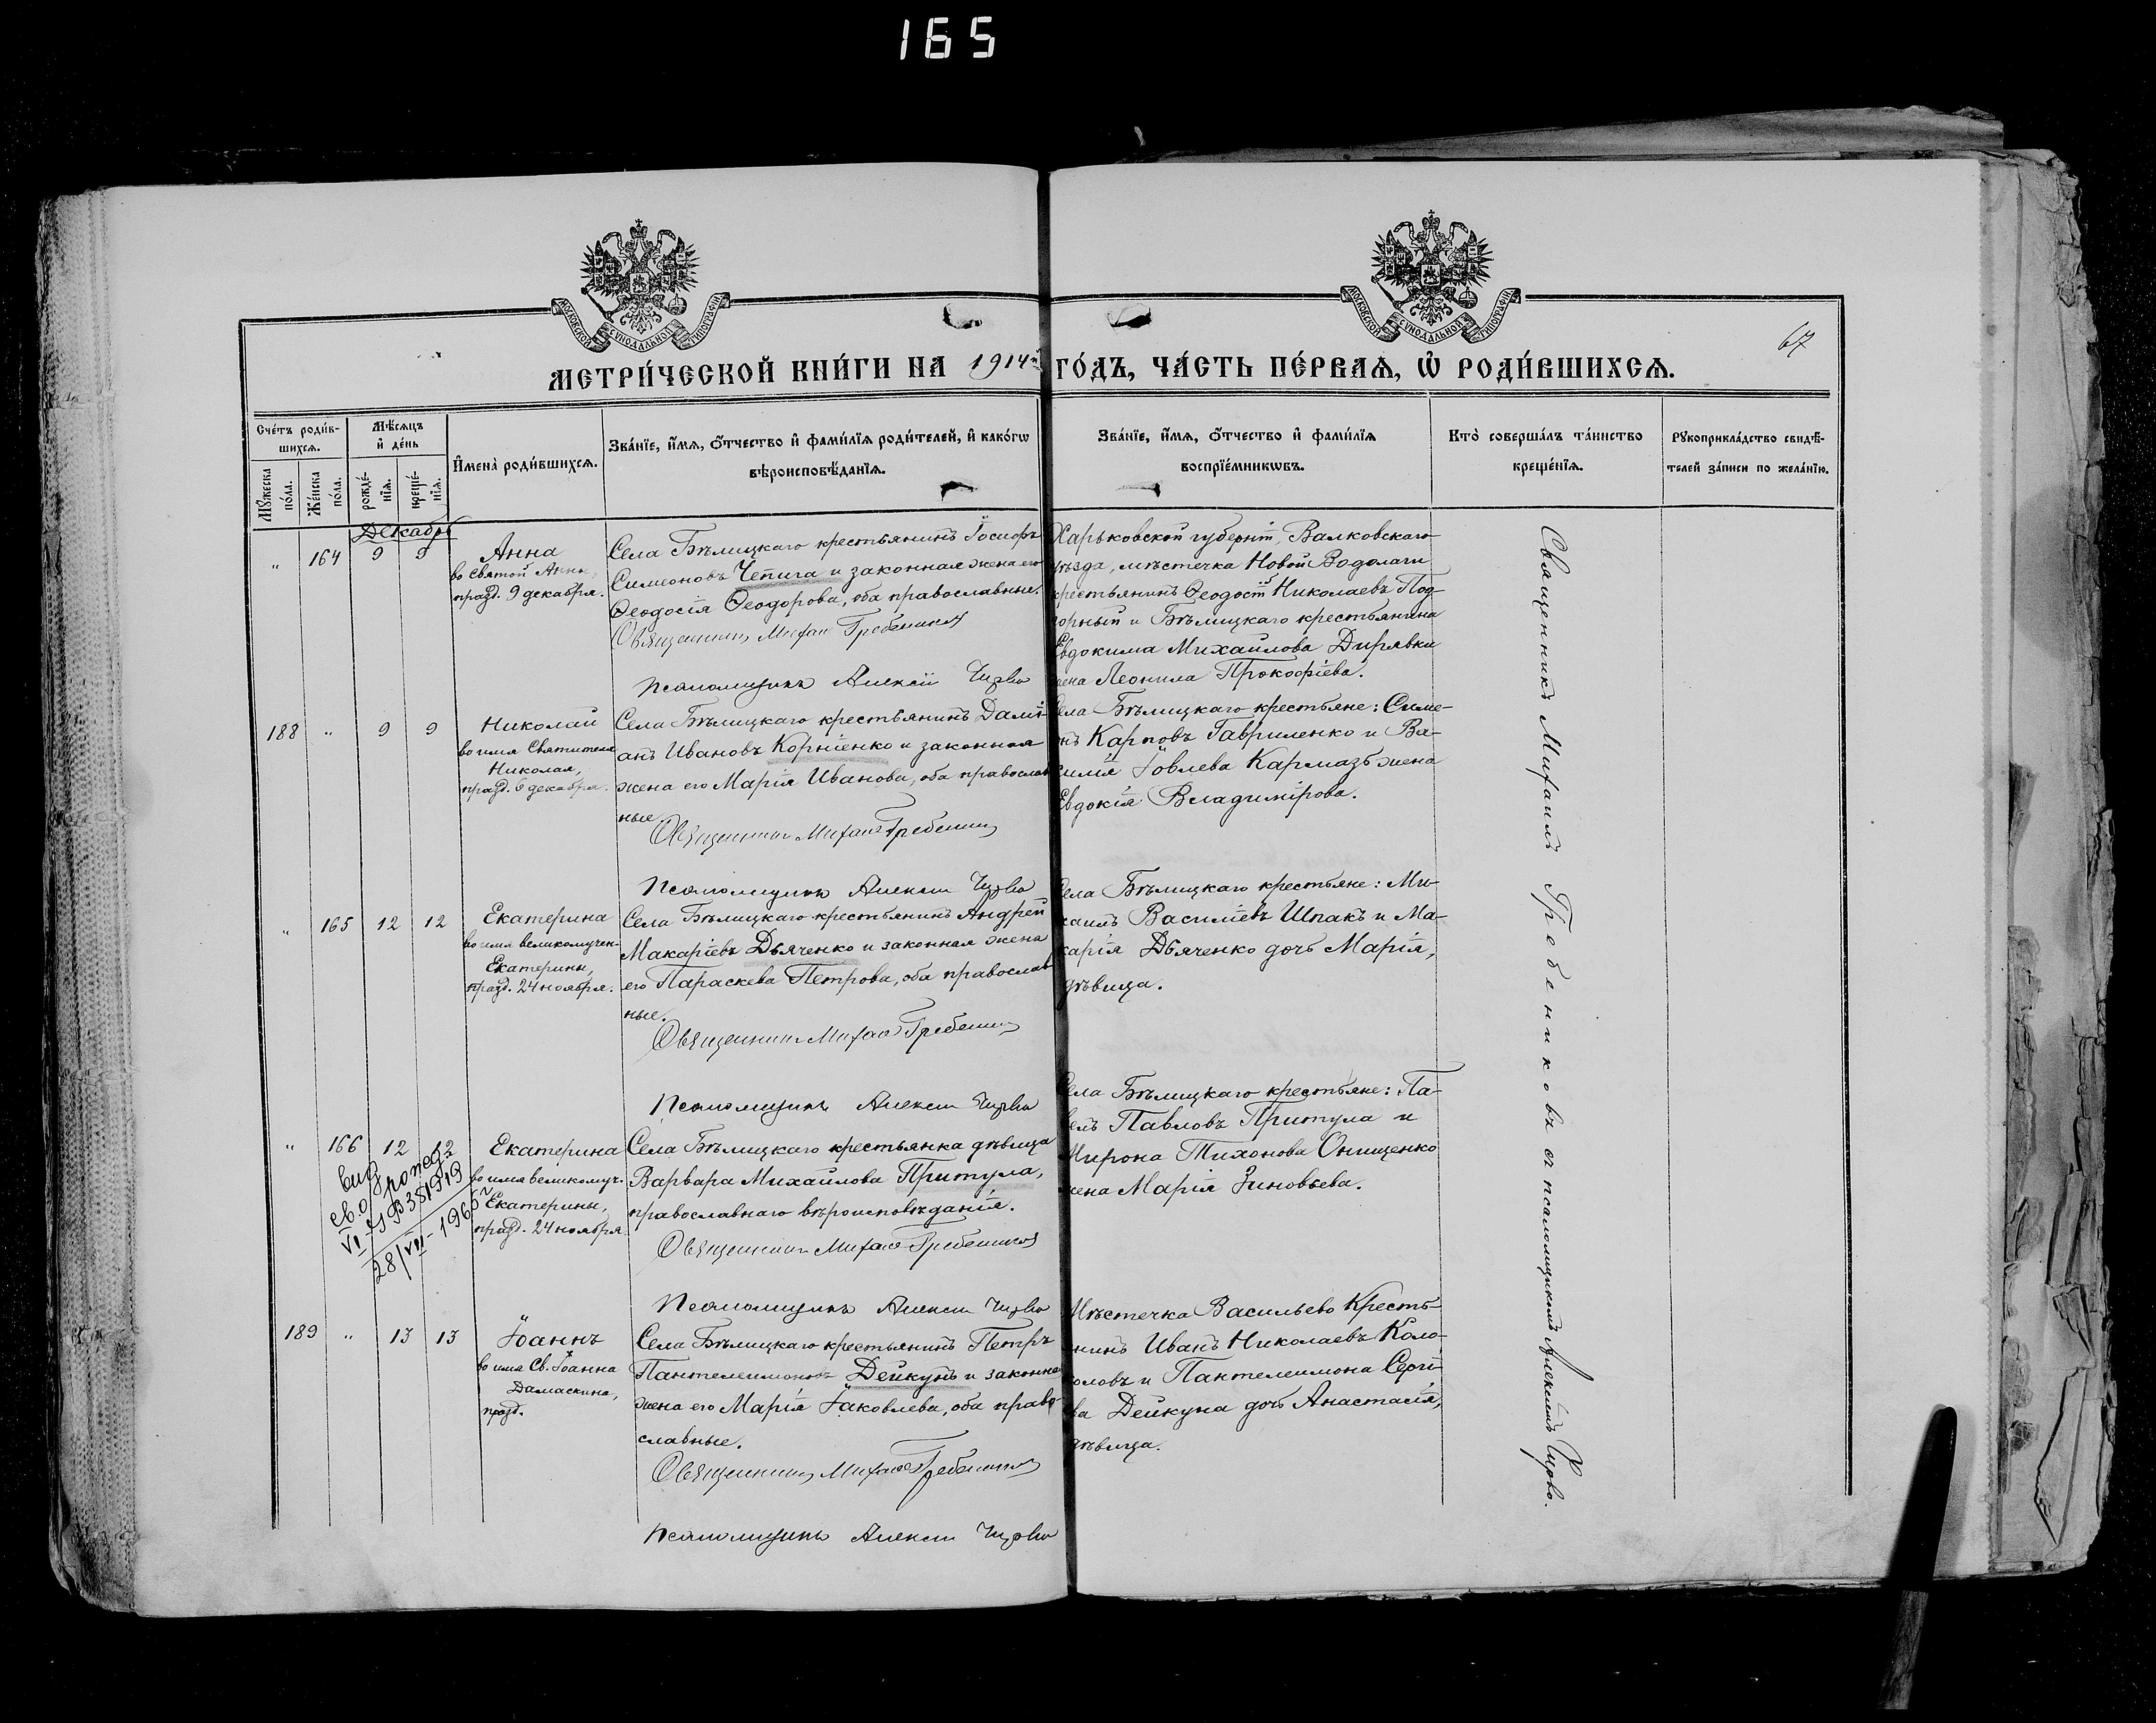 165
МОСКОВСКОЙ СѴНОДАЛЬНОЙ ТИПОГРАФІИ
МОСКОВСКОЙ СѴНОДАЛЬНОЙ ТИПОГРАФІИ
67
МЕТРИ́ЧЕСКОЙ КНИ́ГИ НА 1914й ГО́ДЪ, ЧА́СТЬ ПЕ́РВАѦ, Ѡ҆ РОДИ́ВШИХСѦ.
Сче́тъ роди́в-
шихсѧ.
Мѣ́сѧцъ
и҆ де́нь
Мꙋ́жеска
по́ла.
Же́нска
по́ла.
рожде́-
нїѧ.
креще́-
нїѧ.
И҆мена̀ роди́вшихсѧ.
Зва́нїе, и҆́мѧ, ѻ҆́тчество и҆ фами́лїѧ роди́телей, и҆ како́гѡ
вѣроисповѣ́данїѧ.
Зва́нїе, и҆́мѧ, ѻ҆́тчество и҆ фами́лїѧ
воспрїе́мникѡвъ.
Кто̀ соверша́лъ та́инство
креще́нїѧ.
Рꙋкоприкла́дство свидѣ́-
телей за́писи по жела́нїю.
Декабрь
" 164 9 9
Анна
во Святой Анны,
празд. 9 декабря.
Села Бѣлицкаго крестьянинъ Іосифъ
Симеоновъ Чепига и законная жена его
Ѳеодосія Ѳеодорова, оба православные.
Священникъ Михаил Гребенников
Псаломщикъ Алексій Чирво
Харьковской губерніи, Валковскаго
уѣзда, мѣстечка Новой Водолаги
крестьянинъ Ѳеодосій Николаевъ Под-
горный и Бѣлицкаго крестьянина
Евдокима Михаилова Дирявки
жена Леонила Прокофіева.
188 " 9 9
Николай
во имя Святителя
Николая,
празд. 6 декабря.
Села Бѣлицкаго крестьянинъ Дамі-
анъ Ивановъ Корніенко и законная
жена его Марія Иванова, оба православ
ные.
Священникъ Михаил Гребенников
Псаломщикъ Алексій Чирво
Села Бѣлицкаго крестьяне: Симе-
онъ Карповъ Гавриленко и Ва-
силія Іовлева Кармазъ жена
Евдокія Владимірова.
" 165 12 12
Екатерина
во имя великомучен.
Екатерины,
празд. 24 ноября.
Села Бѣлицкаго крестьянинъ Андрей
Макаріевъ Дьяченко и законная жена
его Параскева Петрова, оба православ
ные.
Священникъ Михаил Гребенников
Псаломщикъ Алексій Чирво
Села Бѣлицкаго крестьяне: Ми-
хаилъ Василіевъ Шпакъ и Ма-
карія Дьяченко дочь Марія,
дѣвица.
" 166 12 12
Екатерина
во имя великомуч.
Екатерины,
празд. 24 ноября
св. о рожд.
28/VII-1965
Села Бѣлицкаго крестьянка дѣвица
Варвара Михаилова Притула,
православнаго вѣроисповѣданія.
Священникъ Михаил Гребенников
Псаломщикъ Алексій Чирво
Села Бѣлицкаго крестьяне: Па-
велъ Павловъ Притула и
Мирона Тихонова Онищенко
жена Марія Зиновьева.
189 " 13 13
Іоаннъ
во имя Св. Іоанна
Дамаскина,
празд.
Села Бѣлицкаго крестьянинъ Петръ
Пантелеимоновъ Дейкунъ и законная
жена его Марія Іаковлева, оба право-
славные.
Священникъ Михаил Гребенников
Псаломщикъ Алексій Чирво
Мѣстечка Васильево Кресть-
янинъ Иванъ Николаевъ Коло-
коловъ и Пантелеимона Сергі-
ева Дейкуна дочь Анастасія,
дѣвица.
Священникъ Михаилъ Гребенниковъ съ псаломщикомъ Алексіемъ Чирво.